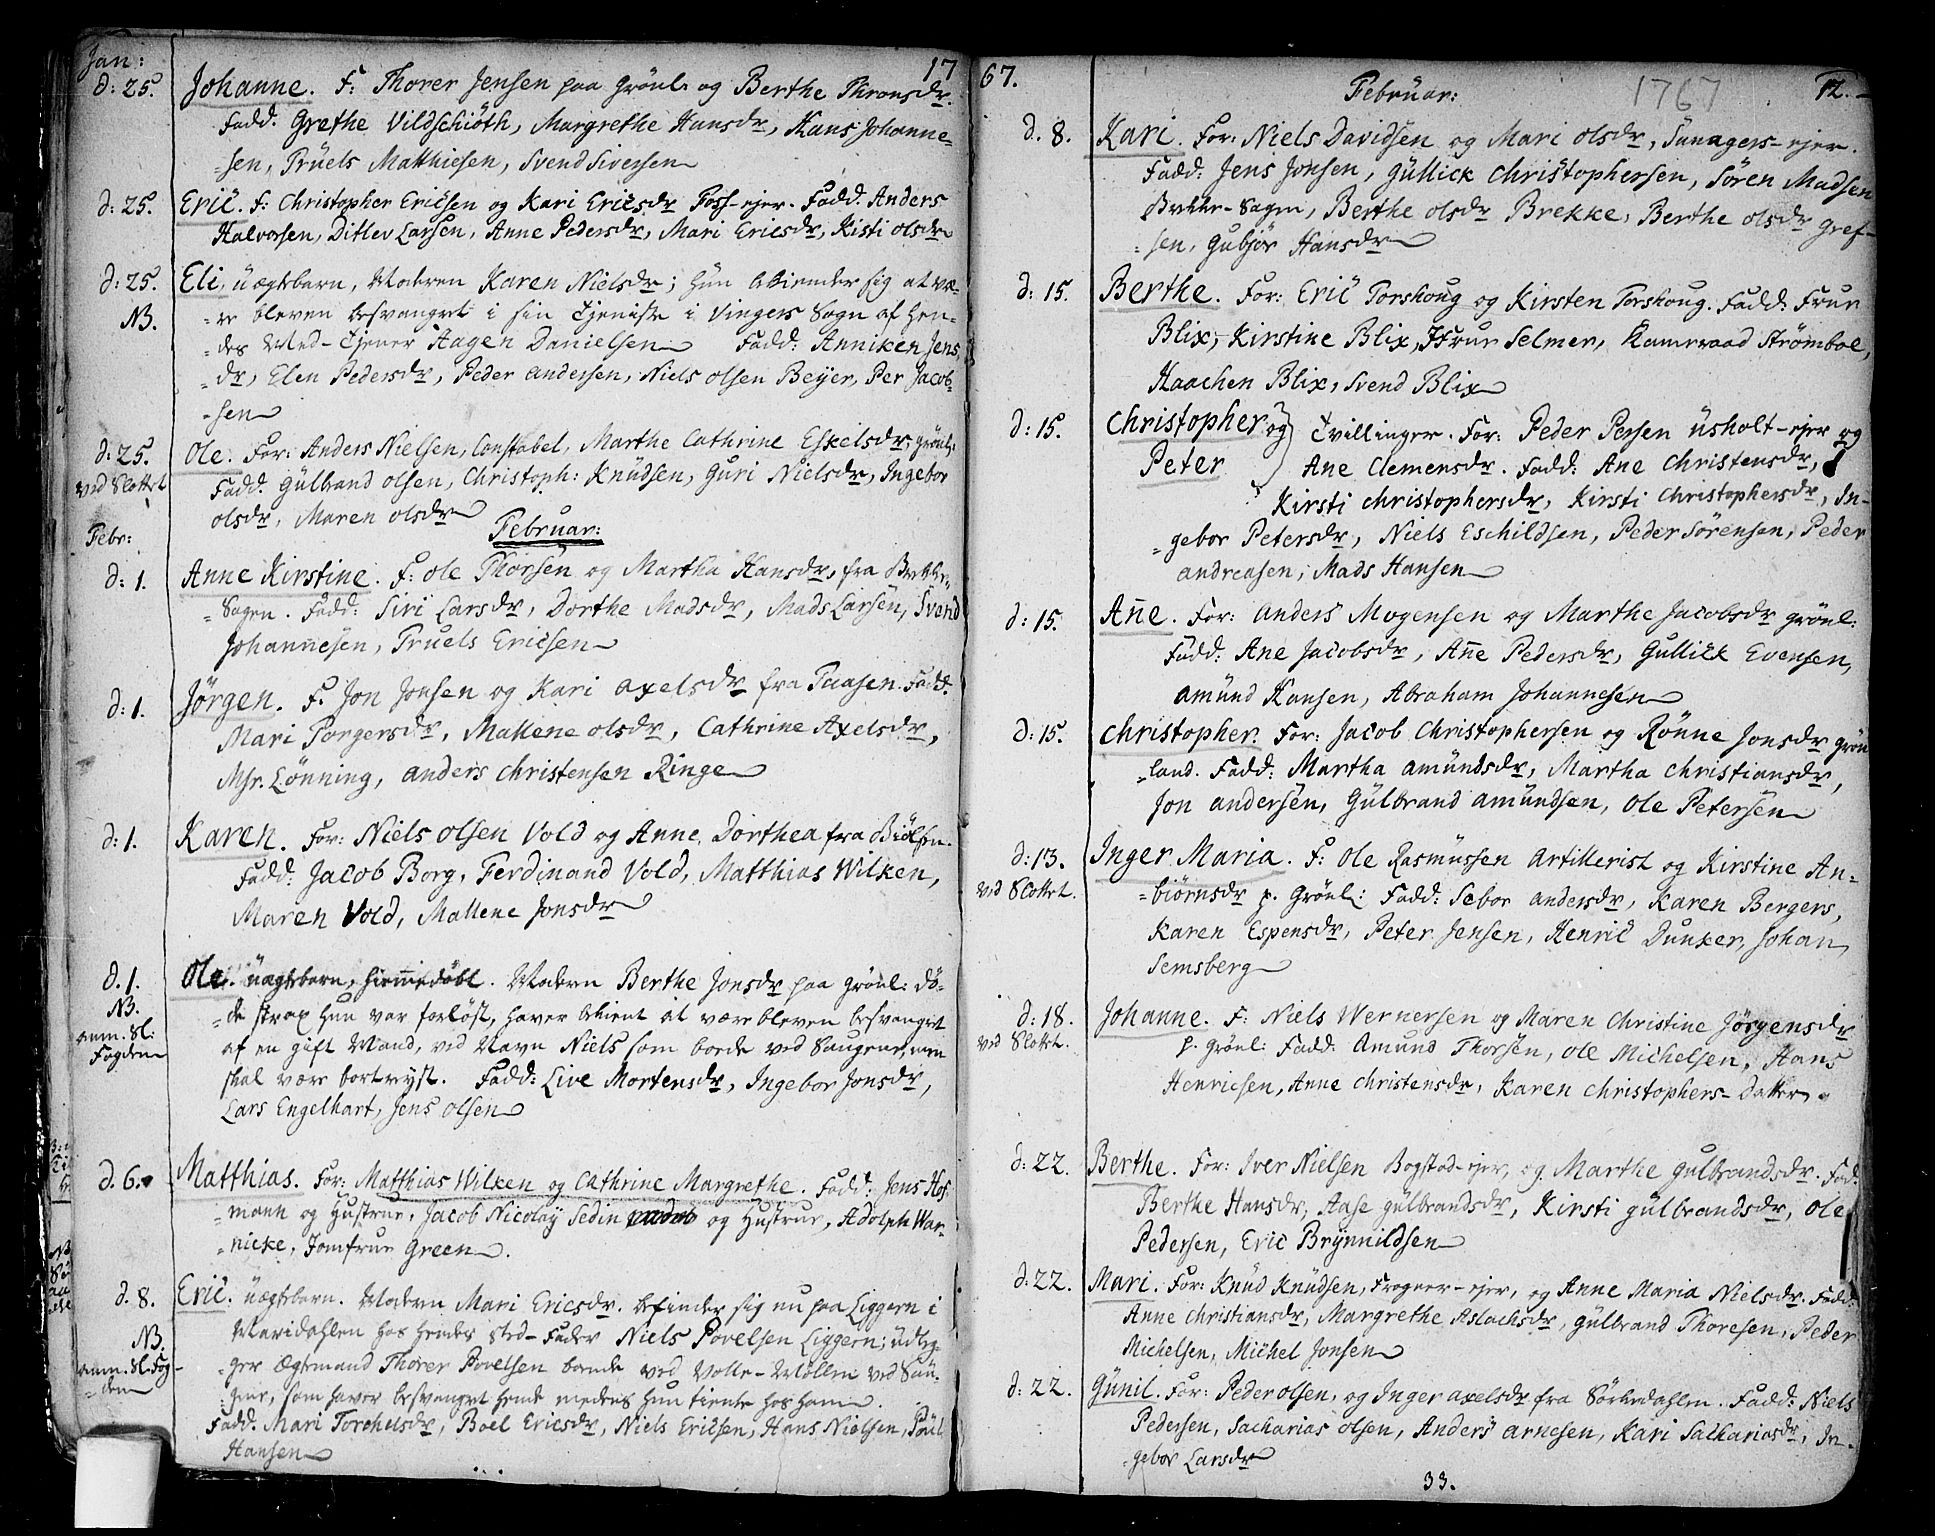 Jan:
17
d: 25. Johanne. F: Thorer Jensen paa Grönl. og Berthe Thronsdr.
Fadd. Grethe Vildschiöth, Margrethe Hansdr, Hans Johanne-
-sen, Trüels Matthiesen, Svend Siversen
d: 25. Eric. F: Christopher Ericsen og Kari Ericsdr Foss-ejer. Fadd. Anders
Halvorsen, Ditlev Larsen, Anne Pedersdr, Mari Ericsdr, Kisti olsdr
d: 25. Eli, uægtebarn, Moderen Karen Nielsdr; hun bekiender sig at væ-
NB. -re bleven besvangret i sin Tjeniste i Vingers Sogn af hen-
-des Med-Tjener Aagen Danielsen Fadd: Anniken Jens
-dr, Elen Pedersdr, Peder Andersen, Niels olsen Beyer, Per Jacob-
-sen
d: 25. Ole. For: Anders Nielsen, Constabel, Marthe Cathrine Eskelsdr, Grönl:
ved Slottet Fadd. Gülbrand olsen, Christoph: Knüdsen, Guri Nielsdr, Ingebor
olsdr, Maren olsdr
Febr: Februar:
d: 1. Anne Kirstine. F: Ole Thorsen og Martha Hansdr, fra Bekker-
-Hagen. Fadd: Siri Larsdr, Dorthe Madsdr, Mads Larsen, Svend
Johannesen, Truels Ericsen
d: 1. Jörgen. F. Jon Jonsen og Kari axelsdr fra Taasen. Fadd.
Mari Torgersdr, Mallene olsdr, Cathrine Axelsdr,
Msr. Lönning, anders christensen Ringe
d: 1. Karen. For: Niels olsen Vold og Anne Dorthea fra Biölsen.
Fadd: Jacob Borg, Ferdinand Vold, Matthias Wilken,
Maren Vold, Mallene Jonsdr
d. 1. Ole. uægtebarn, hiemmedöbt. Modern Berthe Jonsdr paa Grönl: dö-
NB. -de strax hun var forlöst, haver bekient at være bleven besvangret
anm. Sl: af en gift Mand, ved Navn Niels som boede ved Saugene, men
Fogden skal være bortreyst. Fadd: Live Mortensdr, Ingebor Jonsdr,
Lars Engelhart, Jens olsen
d. 6. Matthias. For: Matthias Wilken og Cathrine Margrethe. Fadd: Jens Hof-
-mann og Hustrue, Jacob Nicolaÿ Sedin og Hustrue, Adolph War-
-nicke, Jomfrue Green.
d. 8. Eric. uægtebarn. Modern Mari Ericsdr. befinder sig nu paa Liggern i
Maridahlen hos hendes sted-Fader Niels Povelsen Liggern; üdleg-
NB. -ger Ægtemand Thorer Povelsen boende ved Volle-Möllen ved Sau-
anm. Sl. Fog- -gene, som haver besvangret hende medens hun tiente hos ham.
-den Fadd. Mari Torchelsdr, Boel Ericsdr, Niels Ericsen, Hans Nielsen, Poül
Hansen
67.
Februar: 1767 12.
d. 8. Kari. For: Niels Davidsen og Mari olsdr, Tanagers-ejer.
Fadd: Jens Jonsen, Güllick Christophersen, Sören Madsen
Bekker-Hagen, Berthe olsdr Brekke, Berthe olsdr Gref-
-sen, Gubjör Hansdr
d: 15. Berthe. For: Eric Torshoug og Kirsten Torshoug. Fadd: Frue
Blix, Kirstine Blix, Frue Selmer, Kamerraad Strömboe,
Haachen Blix, Svend Blix
d: 15. Christopher og Tvillinger. For: Peder Persen üsholt-ejer og
Peter Ane Clemensdr. Fadd: Ane Christensdr,
Kirsti christophersdr, Kirsti Christophersdr, In-
-gebor Petersdr, Niels Eschildsen, Peder Sörensen, Peder
andreasen, Mads Hansen
d: 15. Añe. For: anders Mogensen og Marthe Jacobsdr grönl:
Fadd: Ane Jacobsdr, Añe Pedersdr, Gullick Evensen,
amünd Hansen, Abraham Johannesen
d: 15. Christopher. For: Jacob Christophersen og Rönne Jonsdr grön
-land. Fadd: Martha amündsdr, Martha christiansdr,
Jon andersen, Gülbrand amündsen, Ole Petersen
d: 13. Inger Maria. F: Ole Rasmussen Artillerist og Kirstine An-
ved Slottet. -biörnsdr p. Grönl: Fadd: Sebor andersdr, Karen Bergers,
Karen Espensdr, Peter Jensen, Henric Dunker, Johan
Semsberg
d: 18. Johanne. F: Niels Wernersen og Maren Christine Jörgensdr
ved Slottet. p. grönl: Fadd: Amund Thorsen, Ole Michelsen, Hans
Henricsen, Anne christensdr, Karen Christophers-Datter.
d: 22. Berthe. For: Iver Nielsen Bogstad-ejer, og Marthe Gulbrandsdr. Fad:
Berthe Hansdr, Aase gülbrandsdr, Kirsti gülbrandsdr, Ole
Pedersen, Eric Brÿnnildsen
d: 22. Mari. For: Knüd Knüdsen, Frogner-ejer, og Anne Maria Nielsdr. Fadd:
Anne Christiansdr, Margrethe Aslachsdr, Gülbrand Thoresen, Peder
Michelsen, Michel Jonsen
d: 22. Günil. For: Peder olsen, og Inger axelsdr fra Sörkedahlen. Fadd: Niels
Pedersen, Sacharias olsen, Anders arnesen, Kari Sachariasdr, In-
-gebor Larsdr
33.